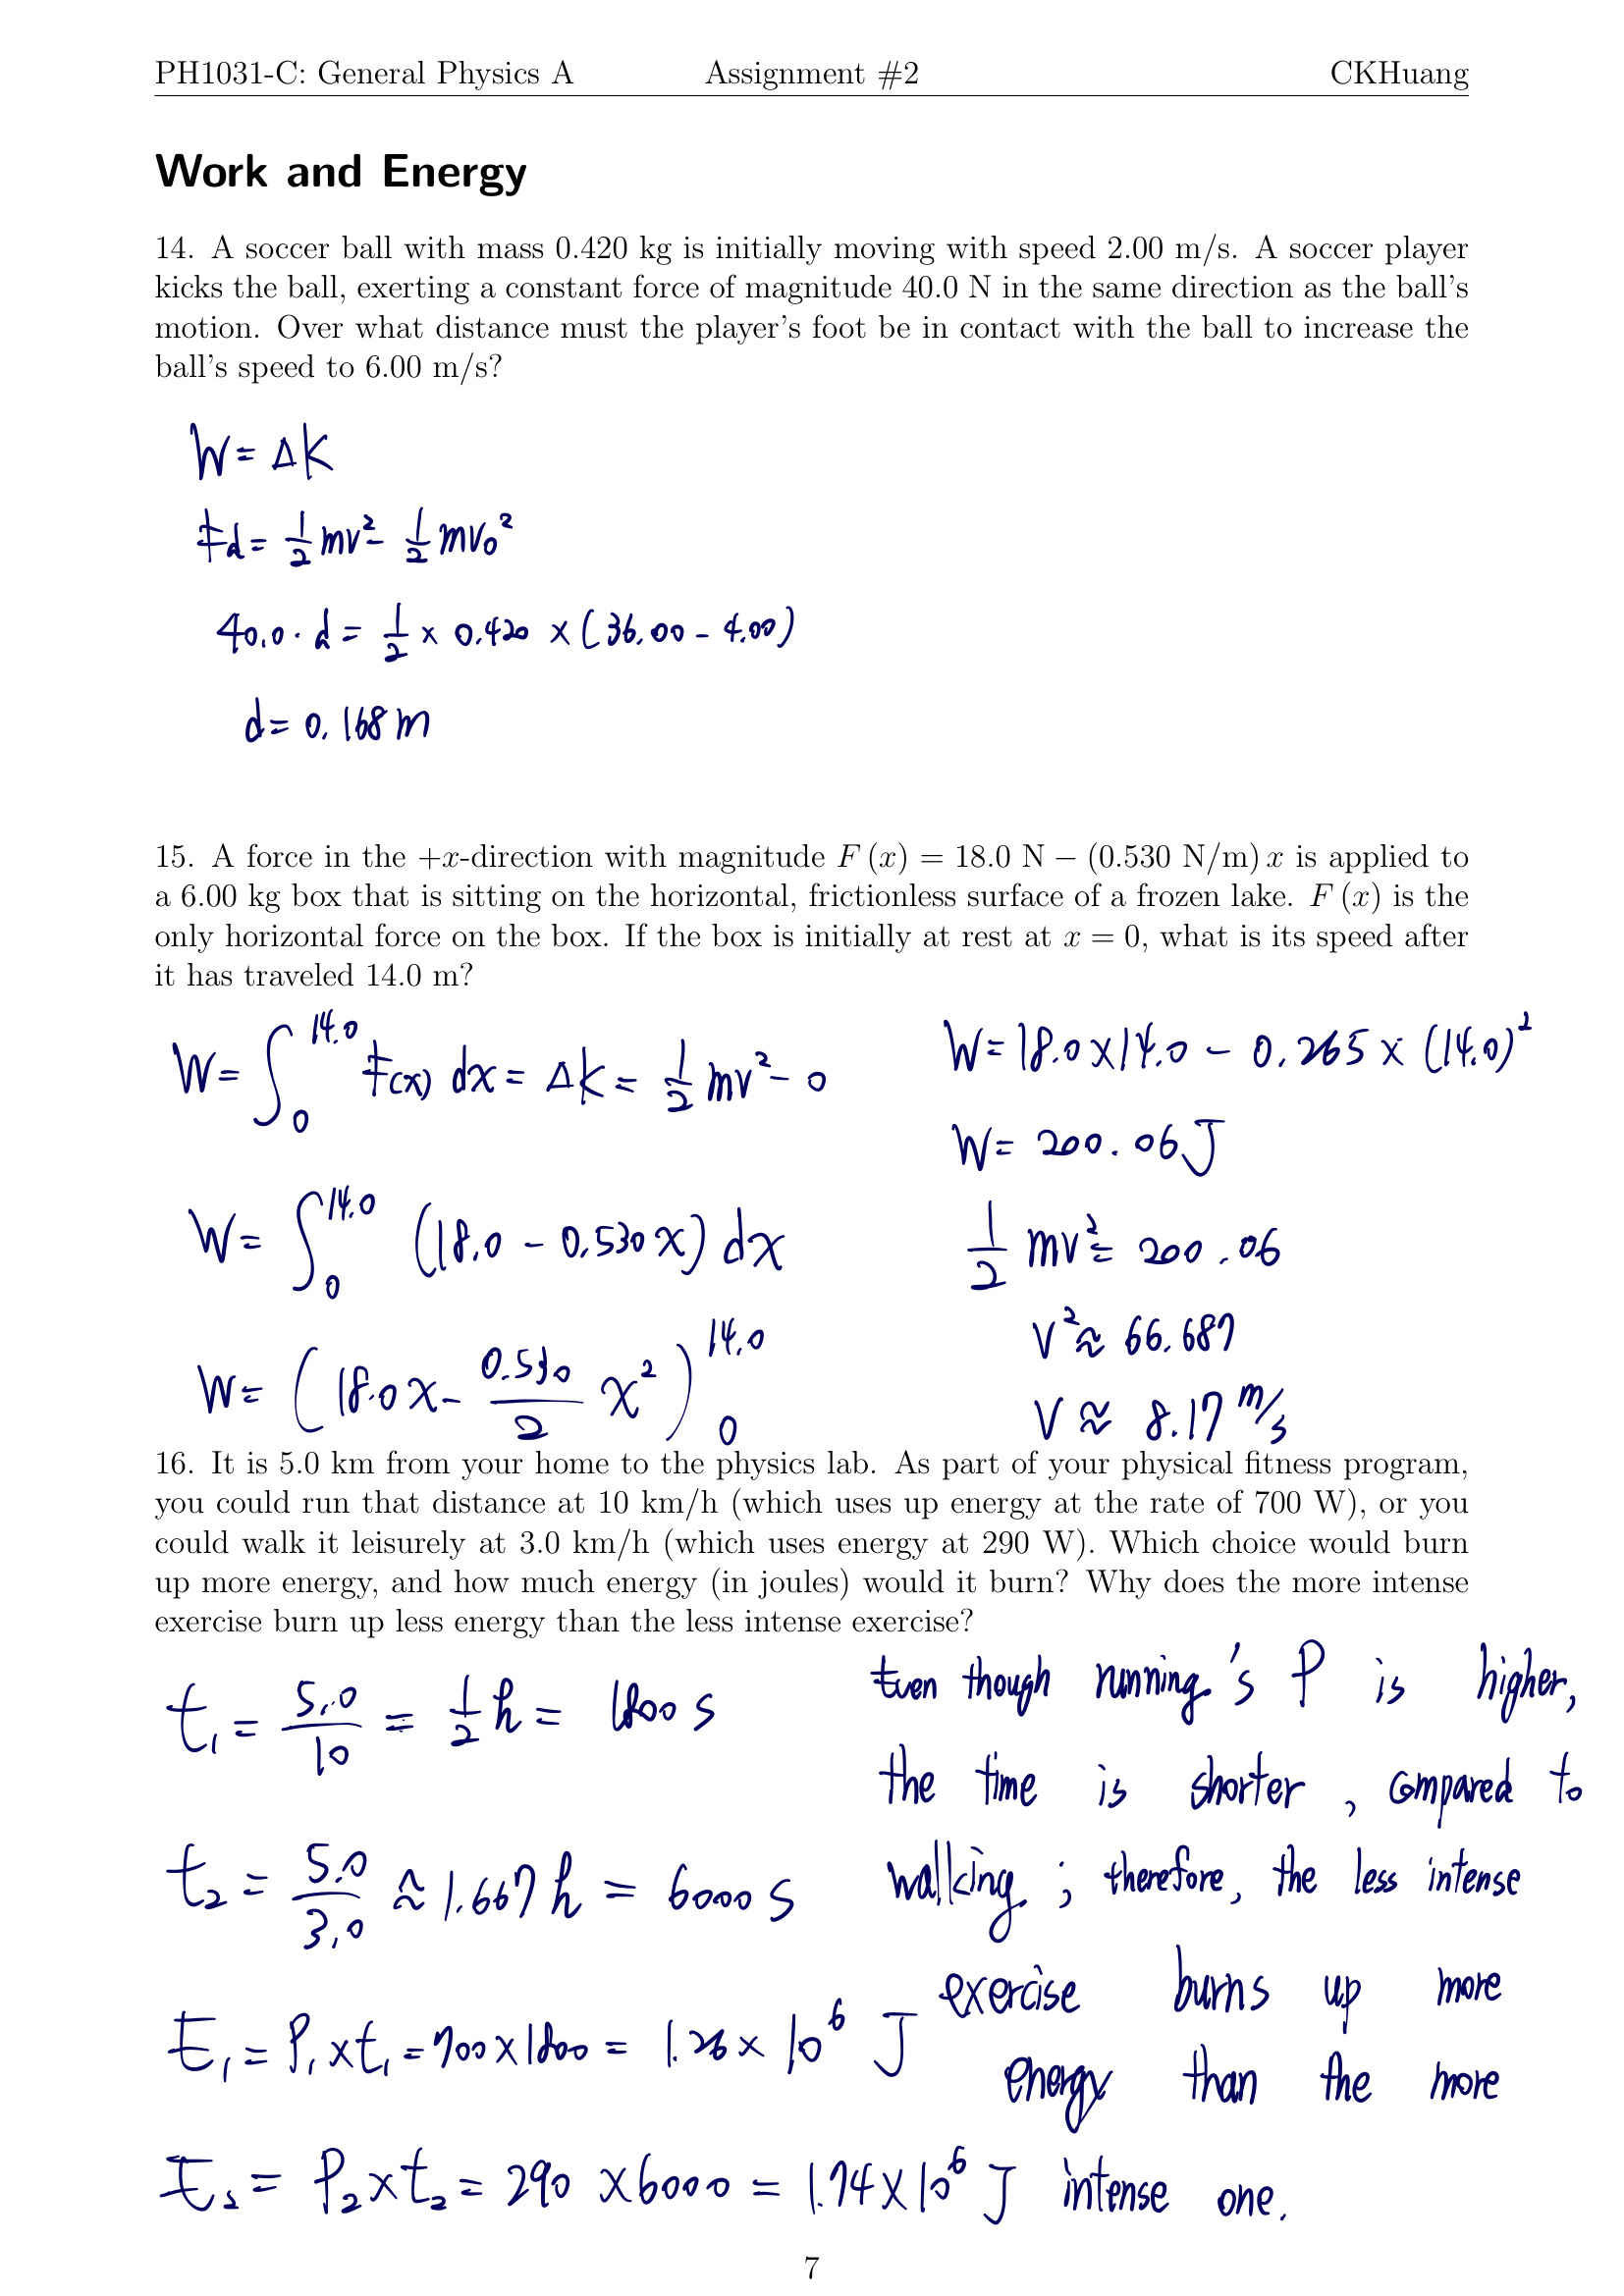 PH1031-C: General Physics A Assignment #2 CKHuang
Work and Energy
14. A soccer ball with mass 0.420 kg is initially moving with speed 2.00 m/s. A soccer player
kicks the ball, exerting a constant force of magnitude 40.0 N in the same direction as the ball's
motion. Over what distance must the player's foot be in contact with the ball to increase the
ball's speed to 6.00 m/s?
W = ΔK
Fd = 1/2 mv² - 1/2 mv₀²
40.0 · d = 1/2 × 0.420 × (36.00 - 4.00)
d = 0.168 m
15. A force in the +x-direction with magnitude F (x) = 18.0 N − (0.530 N/m) x is applied to
a 6.00 kg box that is sitting on the horizontal, frictionless surface of a frozen lake. F (x) is the
only horizontal force on the box. If the box is initially at rest at x = 0, what is its speed after
it has traveled 14.0 m?
W = ∫₀^14.0 F(x) dx = ΔK = 1/2 mv² - 0
W = ∫₀^14.0 (18.0 - 0.530 x) dx
W = (18.0 x - 0.530/2 x²)₀^14.0
W = 18.0 × 14.0 - 0.265 × (14.0)²
W = 200.06 J
1/2 mv² = 200.06
v² ≈ 66.687
v ≈ 8.17 m/s
16. It is 5.0 km from your home to the physics lab. As part of your physical fitness program,
you could run that distance at 10 km/h (which uses up energy at the rate of 700 W), or you
could walk it leisurely at 3.0 km/h (which uses energy at 290 W). Which choice would burn
up more energy, and how much energy (in joules) would it burn? Why does the more intense
exercise burn up less energy than the less intense exercise?
t₁ = 5.0/10 = 1/2 h = 1800 s
t₂ = 5.0/3.0 ≈ 1.667 h = 6000 s
E₁ = P₁ × t₁ = 700 × 1800 = 1.26 × 10⁶ J
E₂ = P₂ × t₂ = 290 × 6000 = 1.74 × 10⁶ J
Even though running's P is higher,
the time is shorter, compared to
walking; therefore, the less intense
exercise burns up more
energy than the more
intense one.
7